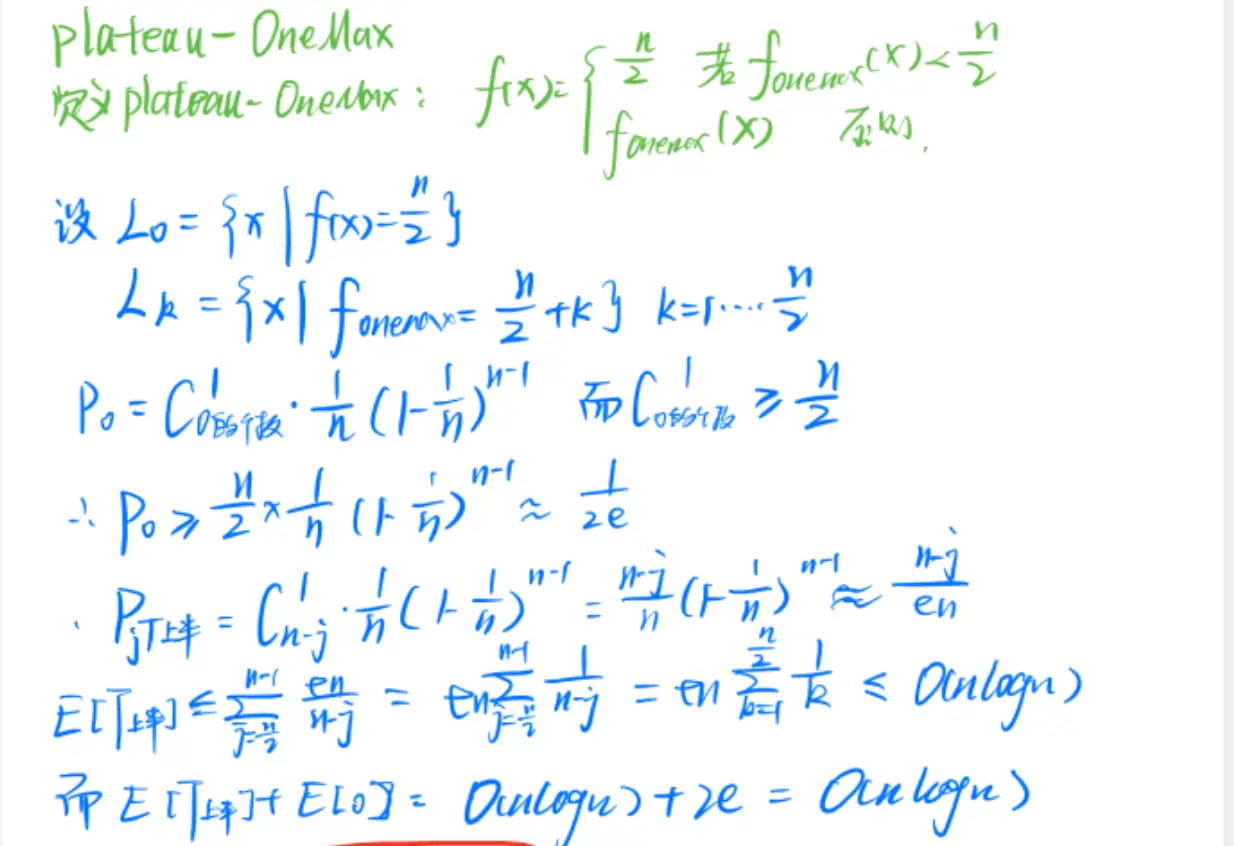 plateau-OneMax
定义plateau-OneMax: f(x)={ n/2 若 f_onemax(x)<n/2
f_onemax(x) 否则.
设 L₀ = {x | f(x)=n/2}
L_k = {x | f_onemax = n/2 +k} k=1····n/2
P₀ = C¹_{0的个数} · 1/n (1-1/n)^{n-1} 而 C¹_{0的个数} ≥ n/2
∴ P₀ ≥ n/2 × 1/n (1-1/n)^{n-1} ≈ 1/2e
. P_{j上半} = C¹_{n-j} · 1/n (1-1/n)^{n-1} = n-j/n (1-1/n)^{n-1} ≈ n-j/en
E[T_{上半}] ≤ ∑_{j=n/2}^{n-1} en/n-j = en ∑_{j=n/2}^{n-1} 1/n-j = en ∑_{k=1}^{n/2} 1/k ≤ O(nlogn)
而 E[T_{上半}]+E[0] = O(nlogn)+2e = O(nlogn)